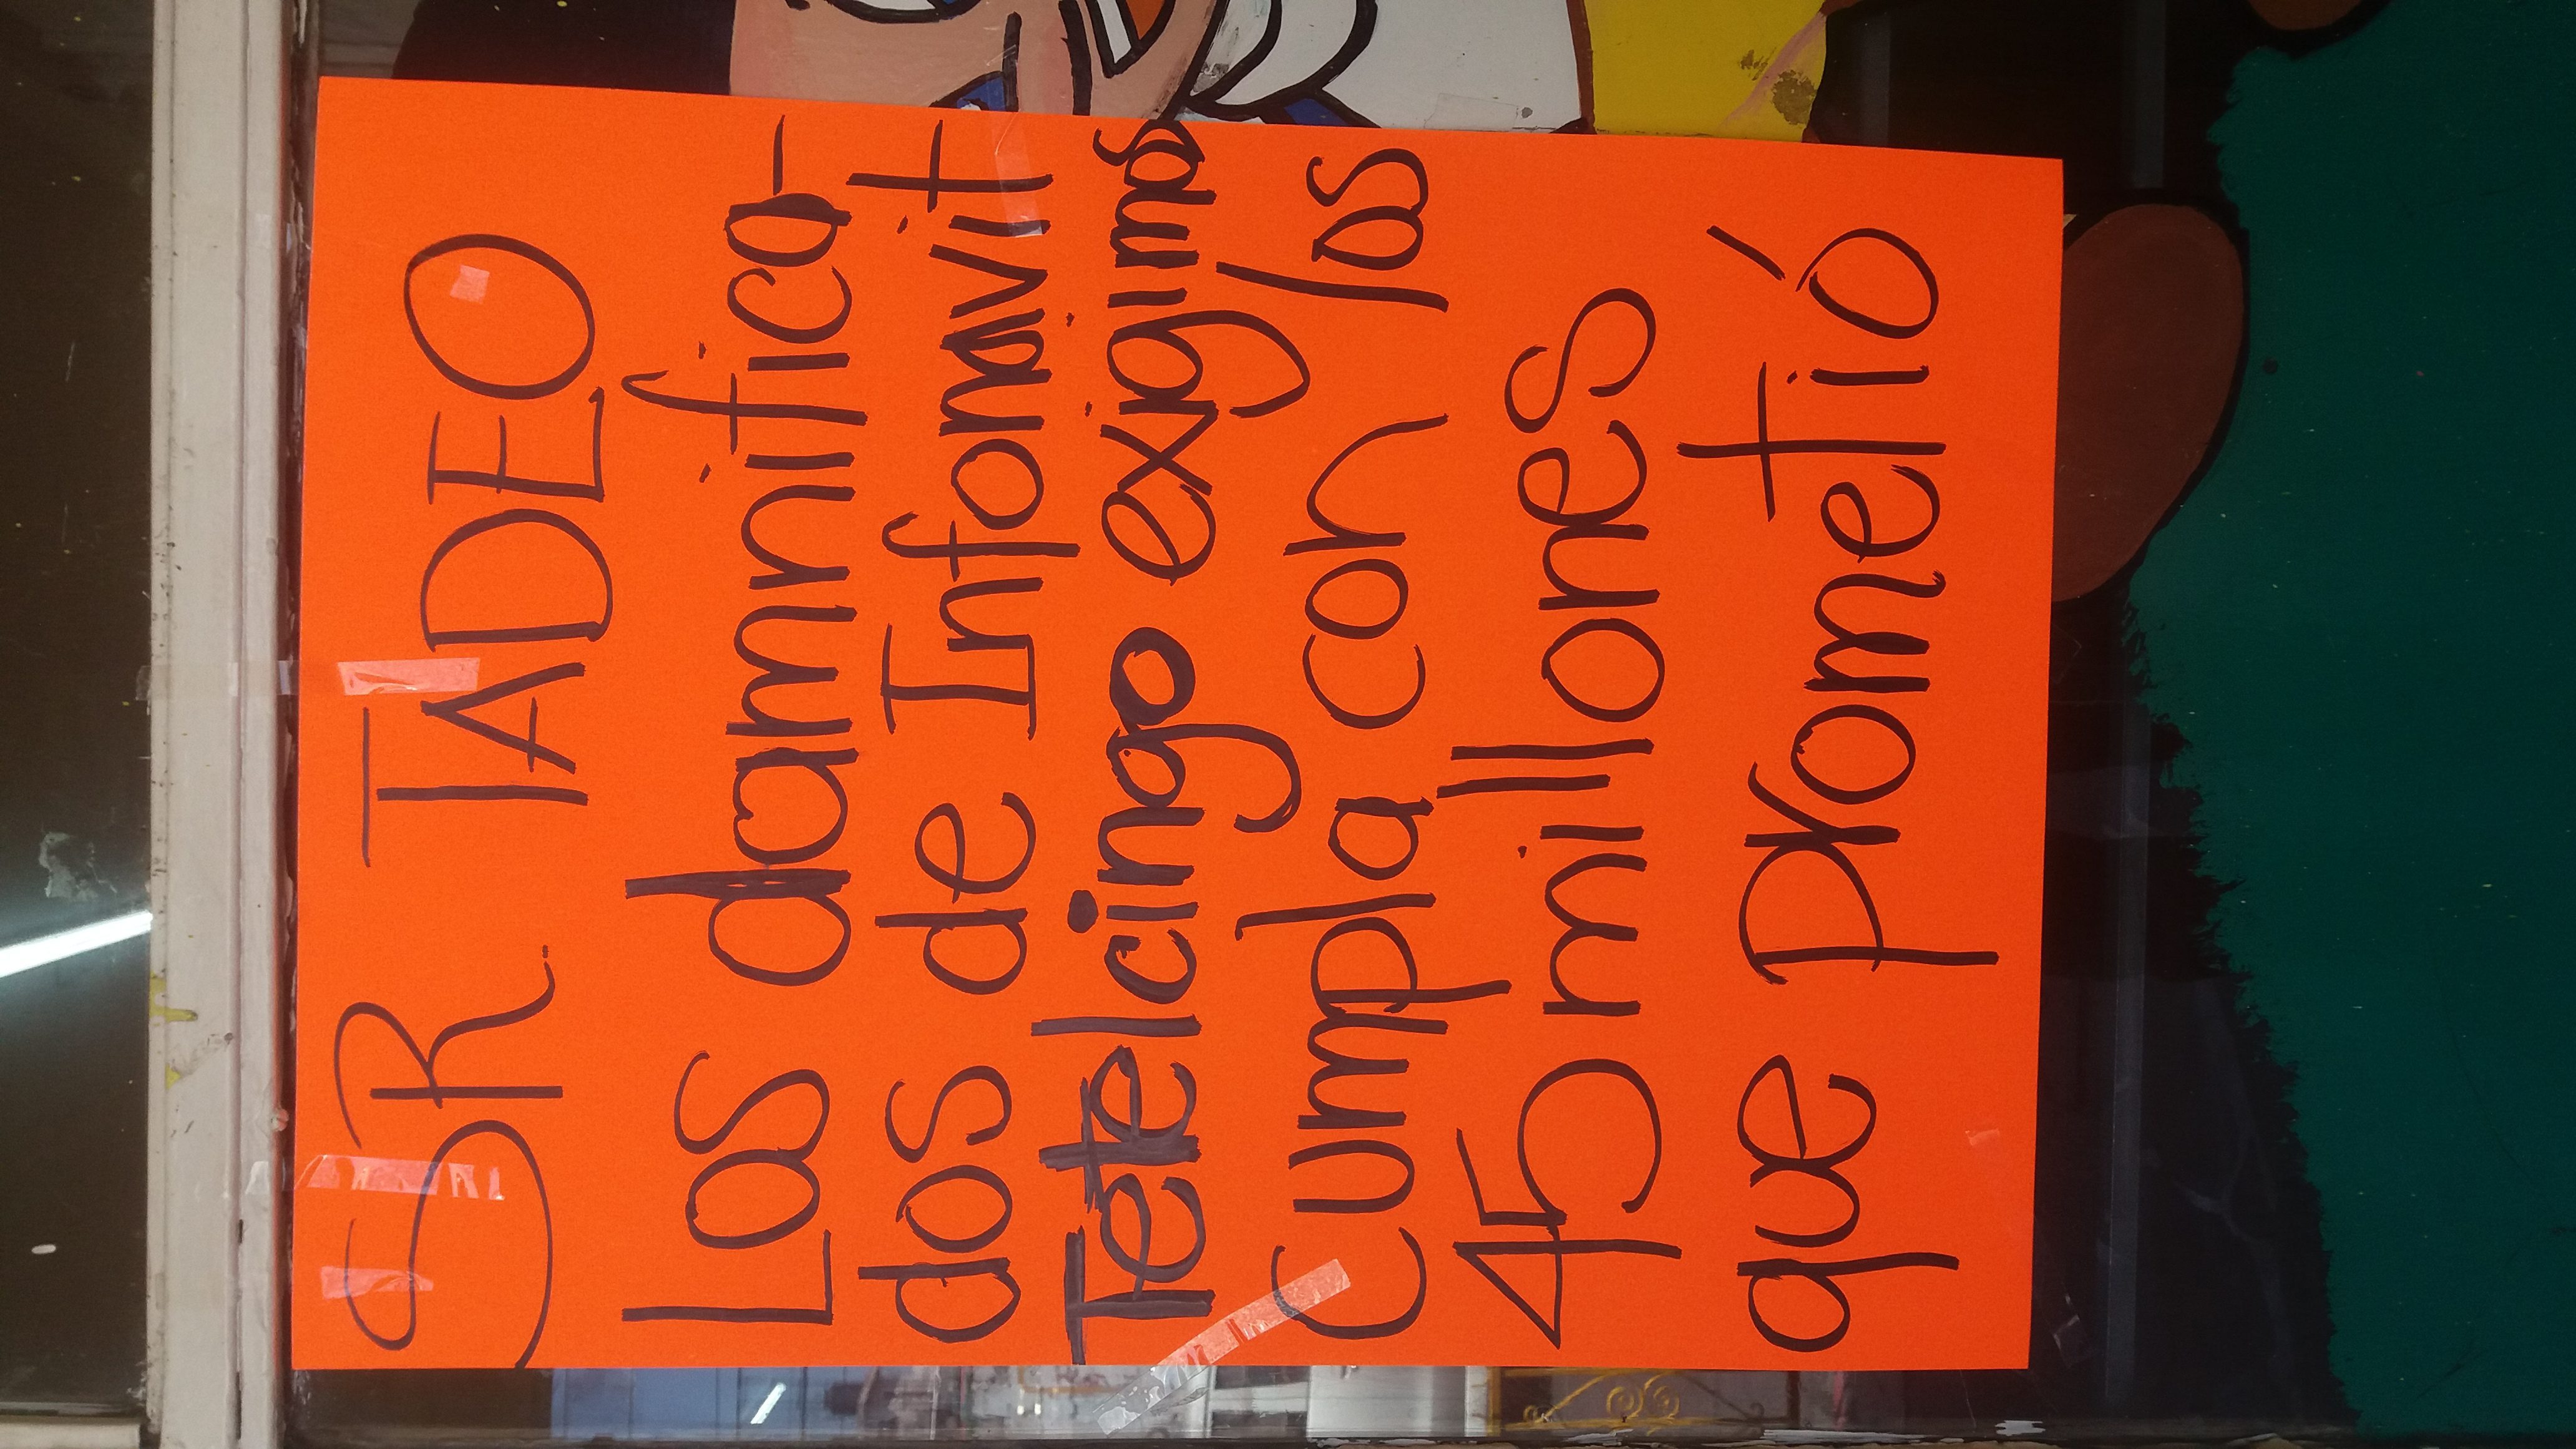 SR. TADEO
Los damnifica-
dos de Infonavit
Tetelcingo exigimos
cumpla con los
45 millones
que prometió